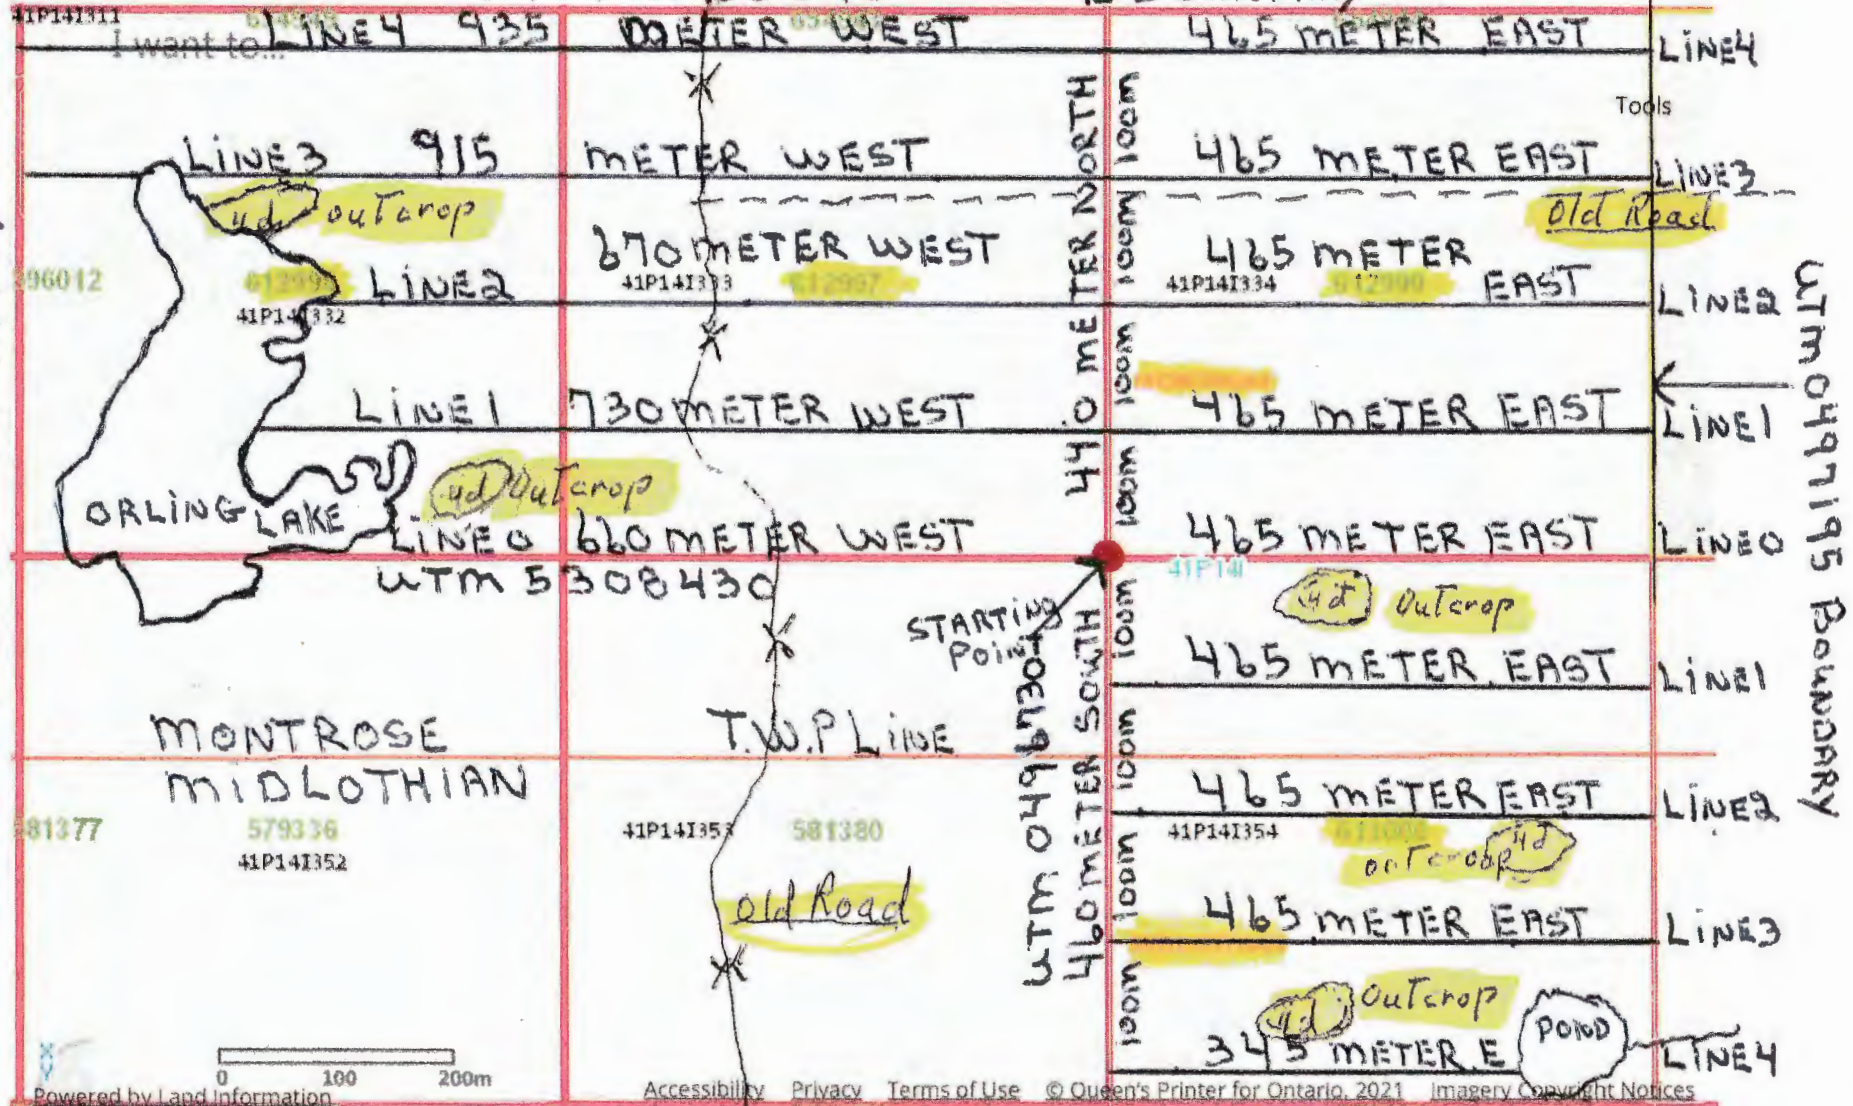 41P14I311
I want to...
LINE 4 935 METER WEST
465 METER EAST
LINE4
Tools
LINE3 915 METER WEST
465 METER EAST
LINE3
4d outcrop
Old Road
670 METER WEST
465 METER EAST
LINE2
LINE2
41P14I332
41P14I333
612997
41P14I334
612999
LINE 1 730 METER WEST
465 METER EAST
LINE1
4d Outcrop
ORLING LAKE
LINE 0 660 METER WEST
465 METER EAST
LINE0
UTM 5308430
41P14I
STARTING POINT
4d Outcrop
465 METER EAST
LINE1
MONTROSE
T.W.P LINE
MIDLOTHIAN
465 METER EAST
LINE2
579336
41P14I352
41P14I353
581380
41P14I354
4d
outcroop
Old Road
465 METER EAST
LINE3
4d Outcrop
345 METER E
POND
LINE4
440 METER NORTH
460 METER SOUTH
100m
100m
100m
100m
100m
100m
100m
100m
UTM 0497195 BOUNDARY
0 100 200m
Powered by Land Information
Accessibility Privacy Terms of Use © Queen's Printer for Ontario, 2021 Imagery Copyright Notices